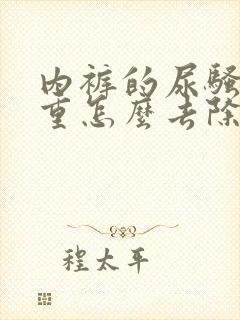 内裤的尿骚
重怎麽去除
程太平